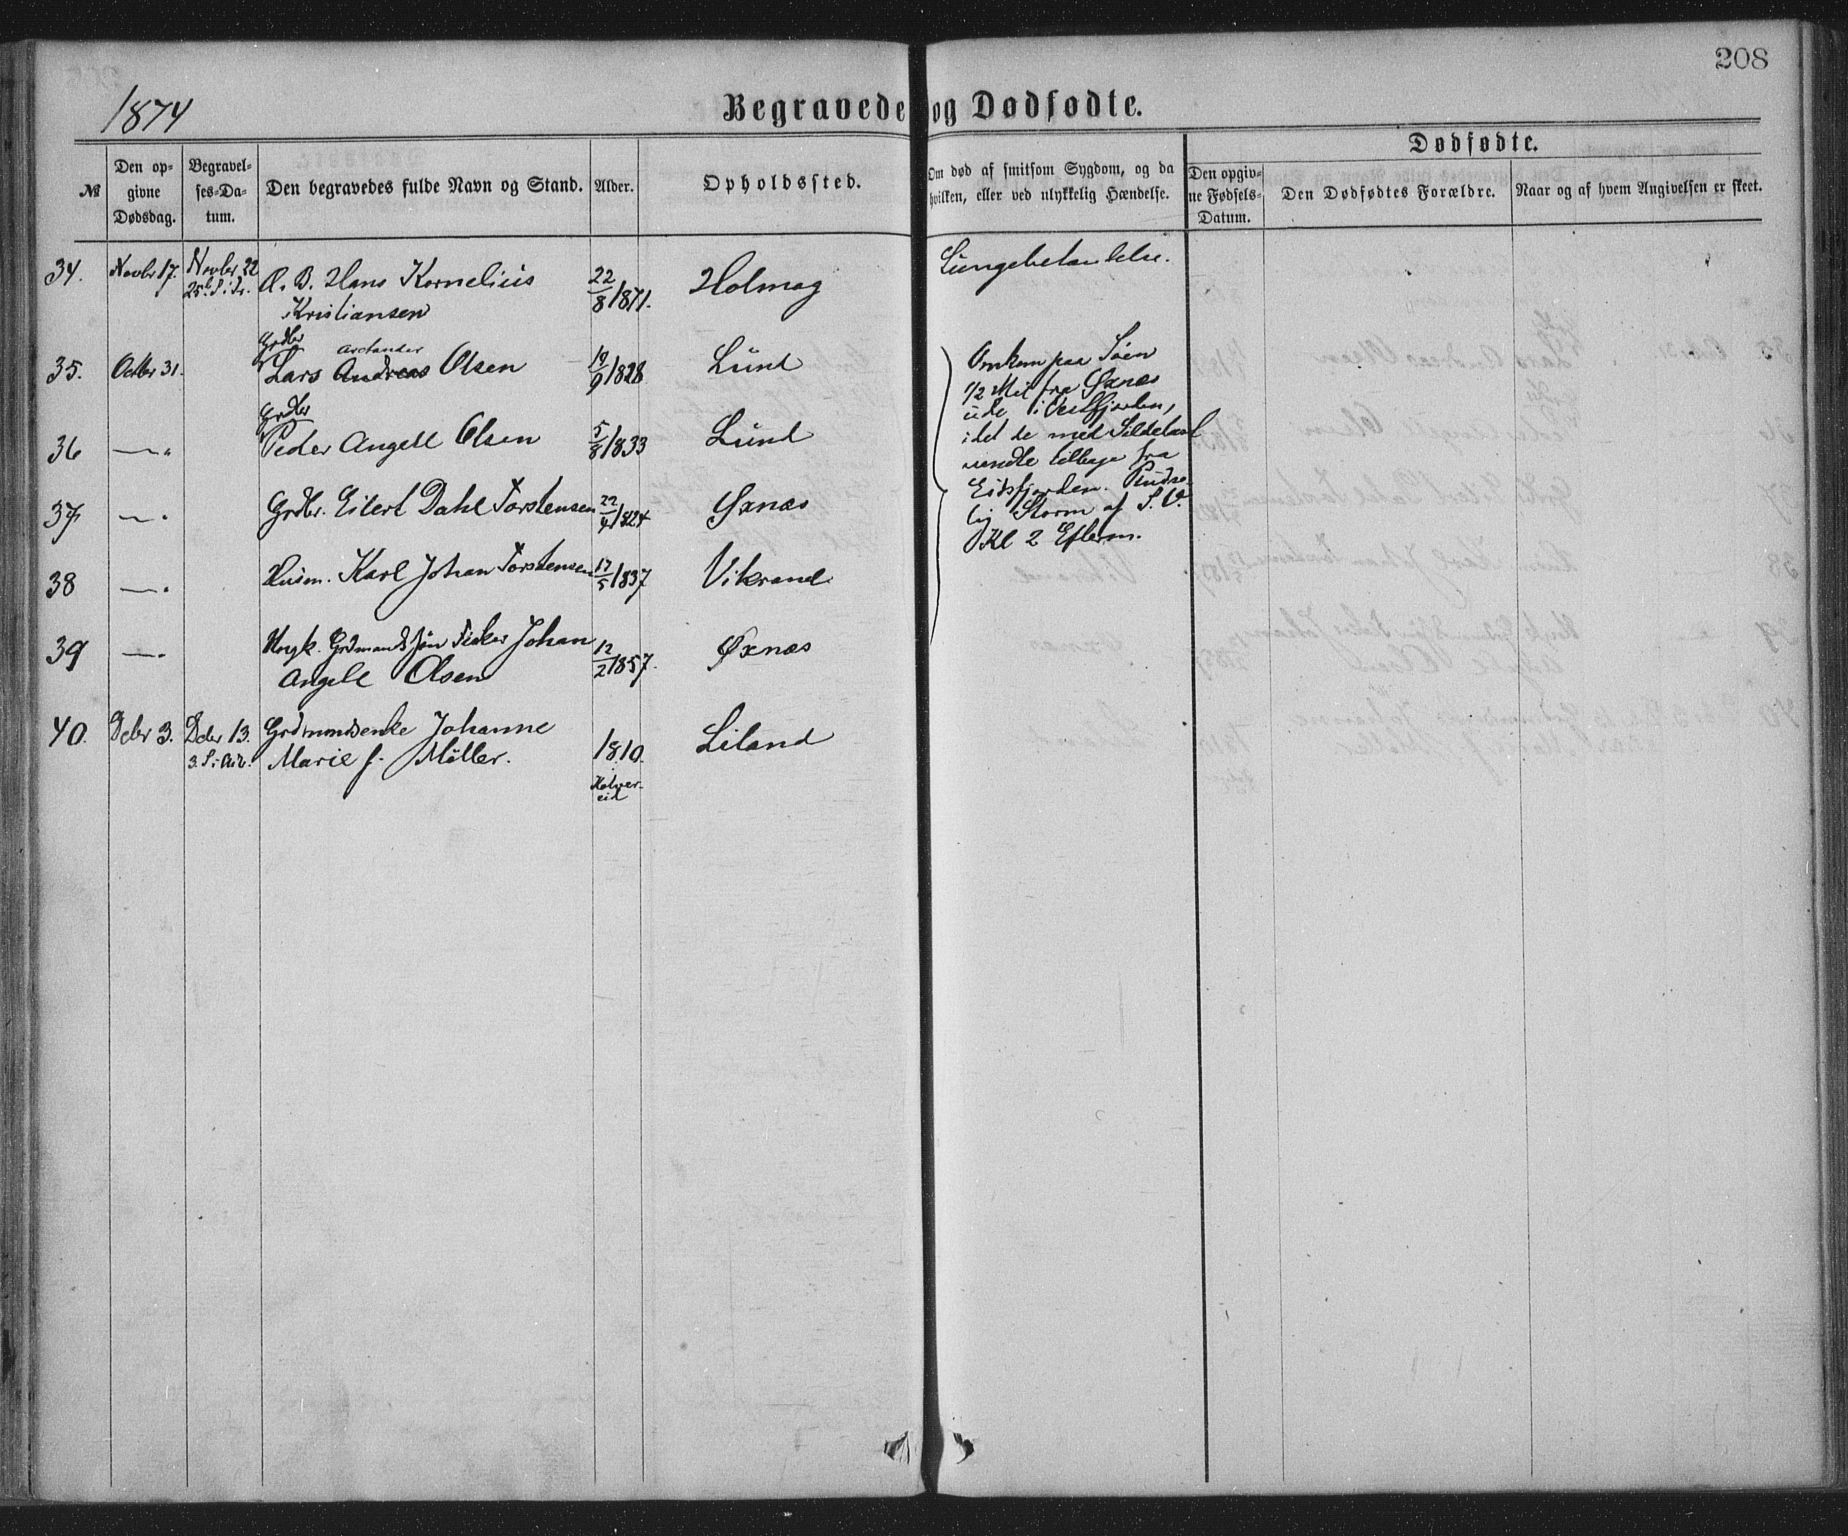 208
1874
Begravede og Dødfødte.
№
Den op-
givne
Dødsdag.
Begravel-
ses-Da-
tum.
Den begravedes fulde Navn og Stand.
Alder.
Opholdssted.
Om død af smitsom Sygdom, og da
hvilken, eller ved ulykkelig Hændelse.
Dødfødte.
Den opgiv-
ne Fødsels-
Datum.
Den Dødfødtes Forældre.
Naar og af hvem Angivelsen er skeet.
34. Novbr 17. Novbr 22 B. Hans Kornelius 22/8 1871. Holmag Lungebetændelse.
Kristiansen
Grdbr
Arctander
35. Octbr 31. Lars Andreas Olsen 19/9 1828 Lund
Grdbr
36 —"— Peder Angell Olsen 5/8 1833 Lund
37 —"— Grdbr. Eilert Dahl Torstensen 22/4 1824 Øxnæs
38 —"— Husm. Karl Johan Torstensen 17/5 1837 Vikrand
39 —"— Ungk. Grdmands Søn Johan 12/2 1857. Øxnæs
Angell Olsen
Omkom paa Søen
1/2 Mil fra Øxnæs
ude i Vestfjorden,
idet de med
vendte tilbage fra
Eidsfjorden.
lig Storm af S.V.
Kl 2 Efterm.
40. Dcbr 3. Dcbr 13. Grdmandsenke Johanne 1810. Liland
Marie f. Møller.
Kolver-
eid